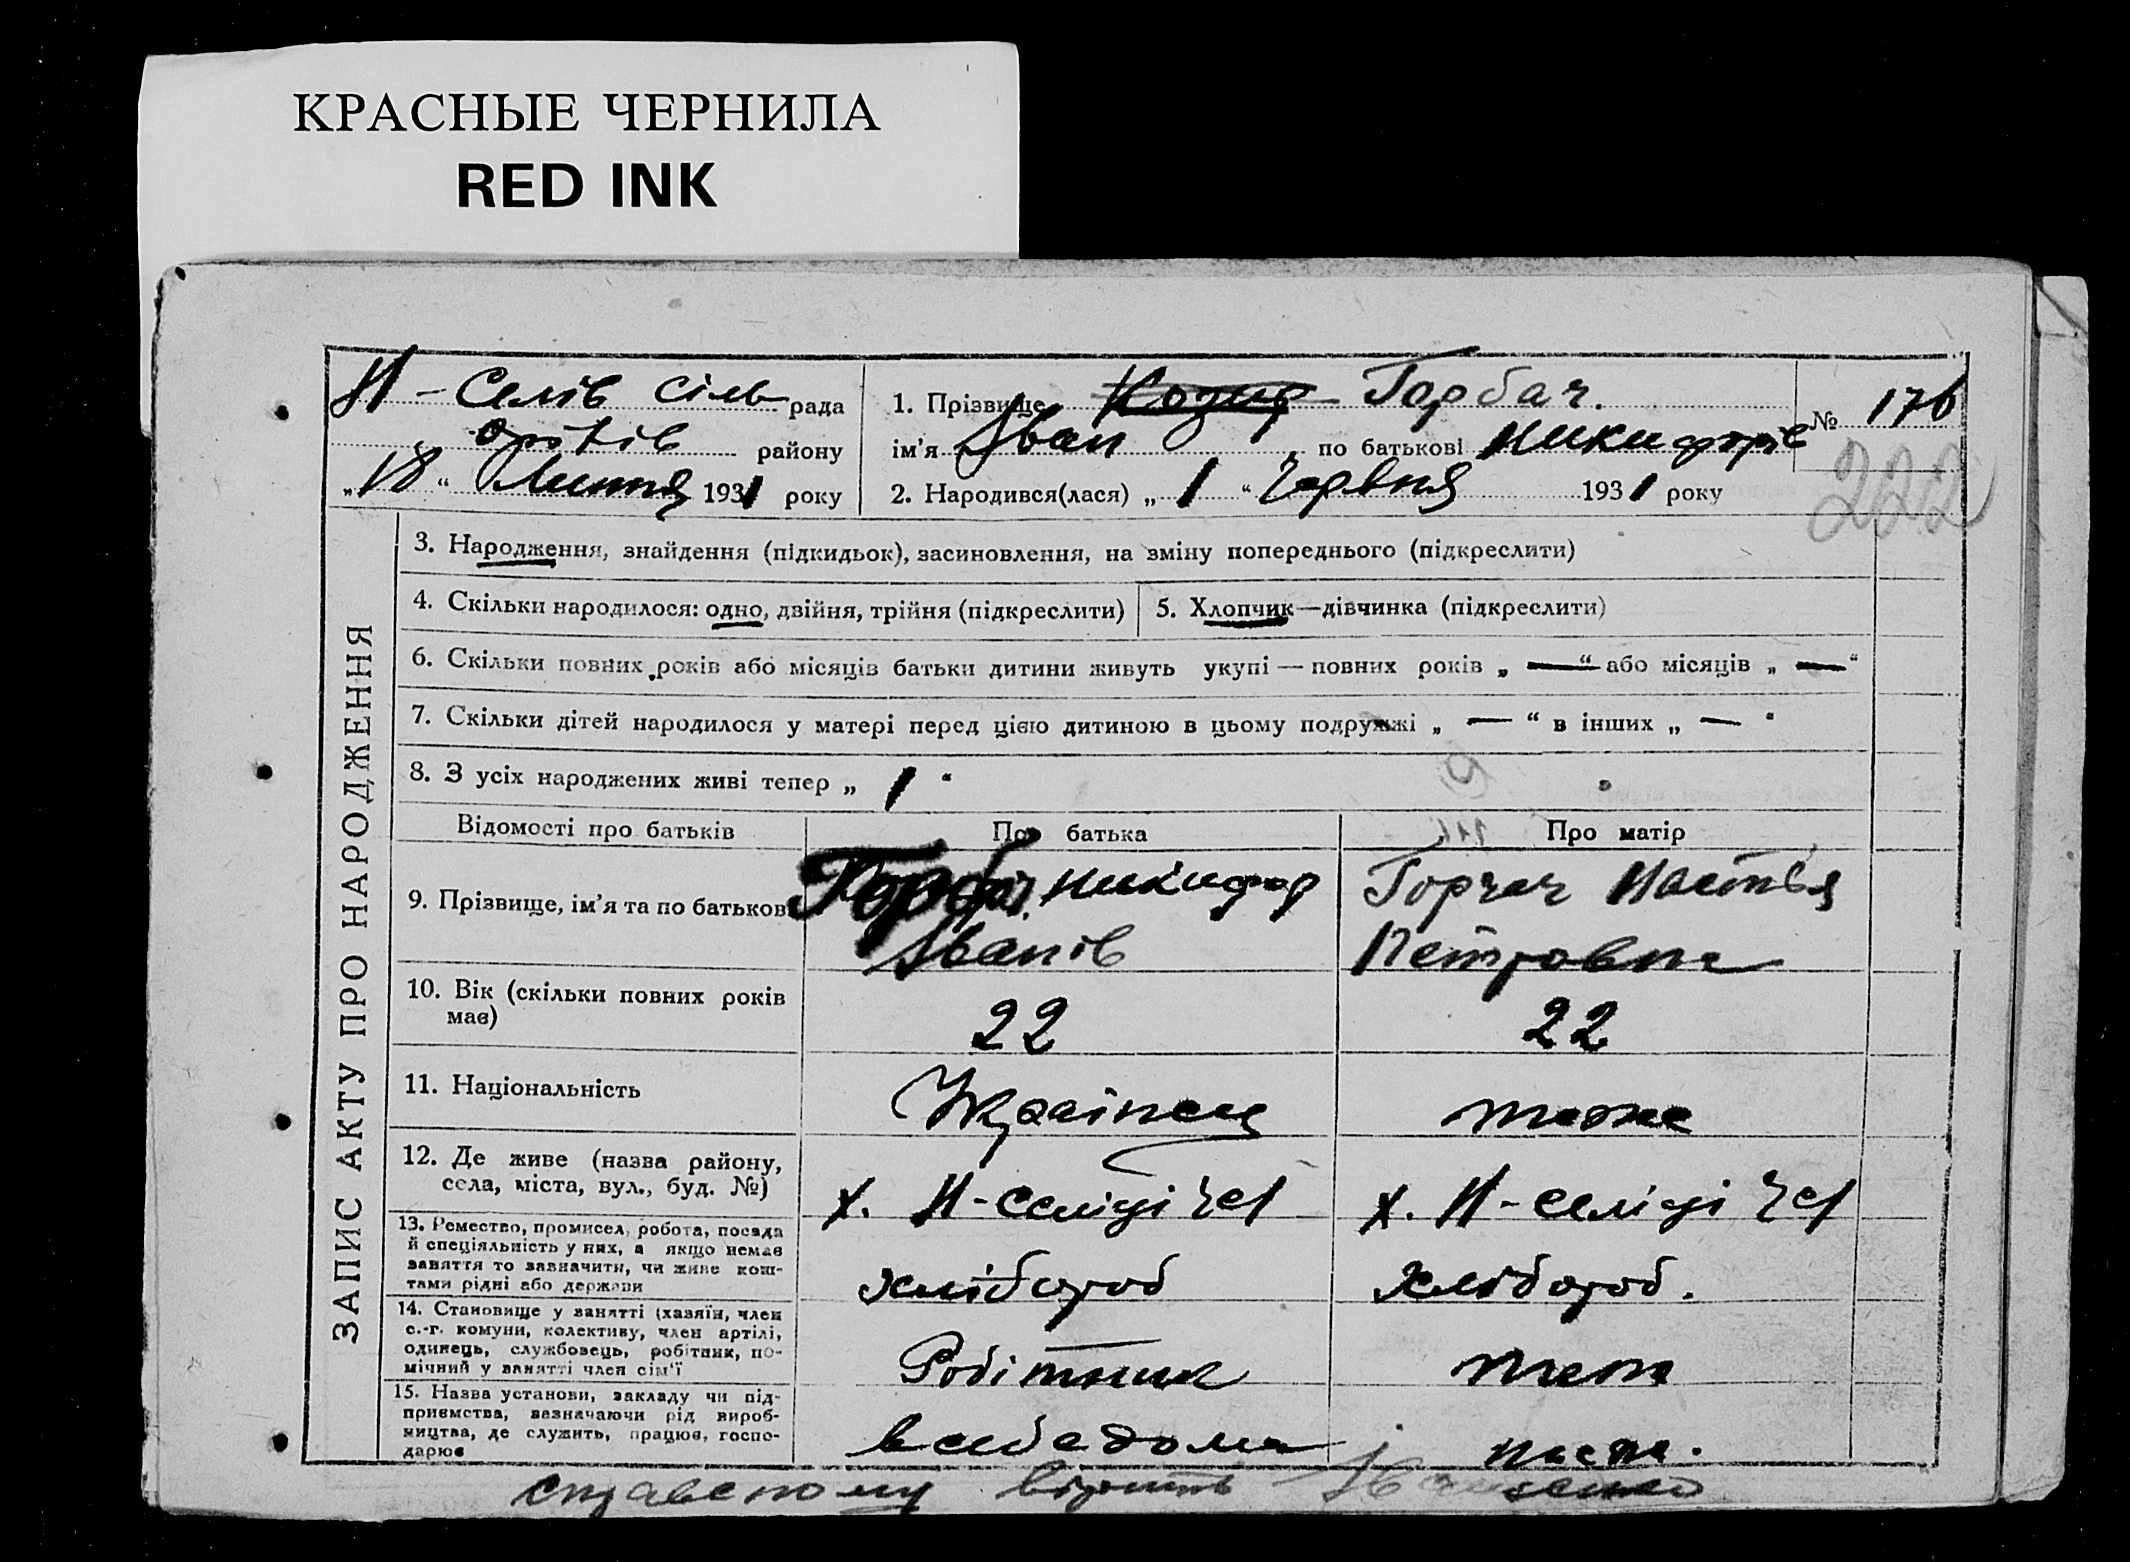 КРАСНЫЕ ЧЕРНИЛА
RED INK
Н-Селів сіль рада
району
„18“ Липня 1931 року
1. Прізвище Козир Горбач.
ім'я Іван по батькові Никифорів
2. Народився(лася) „1“ Червня 1931 року
№ 176
222
ЗАПИС АКТУ ПРО НАРОДЖЕННЯ
3. Народження, знайдення (підкидьок), засиновлення, на зміну попереднього (підкреслити)
4. Скільки народилося: одно, двійня, трійня (підкреслити)
5. Хлопчик—дівчинка (підкреслити)
6. Скільки повних років або місяців батьки дитини живуть укупі — повних років „ — “ або місяців „ — “
7. Скільки дітей народилося у матері перед цією дитиною в цьому подружжі „ — “ в інших „ — “
8. З усіх народжених живі тепер „ 1 “
Відомості про батьків
Про батька
Про матір
9. Прізвище, ім'я та по батькові
Горбач Никифор
Іванів
Горбач Настья
Петровна
10. Вік (скільки повних років
має)
22
22
11. Національність
Українец
тоже
12. Де живе (назва району,
села, міста, вул., буд. №)
х. Н-Селіці
х. Н-Селіці
13. Ремество, промисел, робота, посада
й спеціяльність у них, а якщо немає
заняття то зазначити, чи живе кош-
тами рідні або держави
хлібороб
хлібороб.
14. Становище у занятті (хазяїн, член
с.-г. комуни, колективу, член артілі,
одинець, службовець, робітник, по-
мічний у занятті член сім'ї
Робітник
15. Назва установи, закладу чи під-
приємства, зазначаючи рід вироб-
ництва, де служить, працює, госпо-
дарює
в себе дома